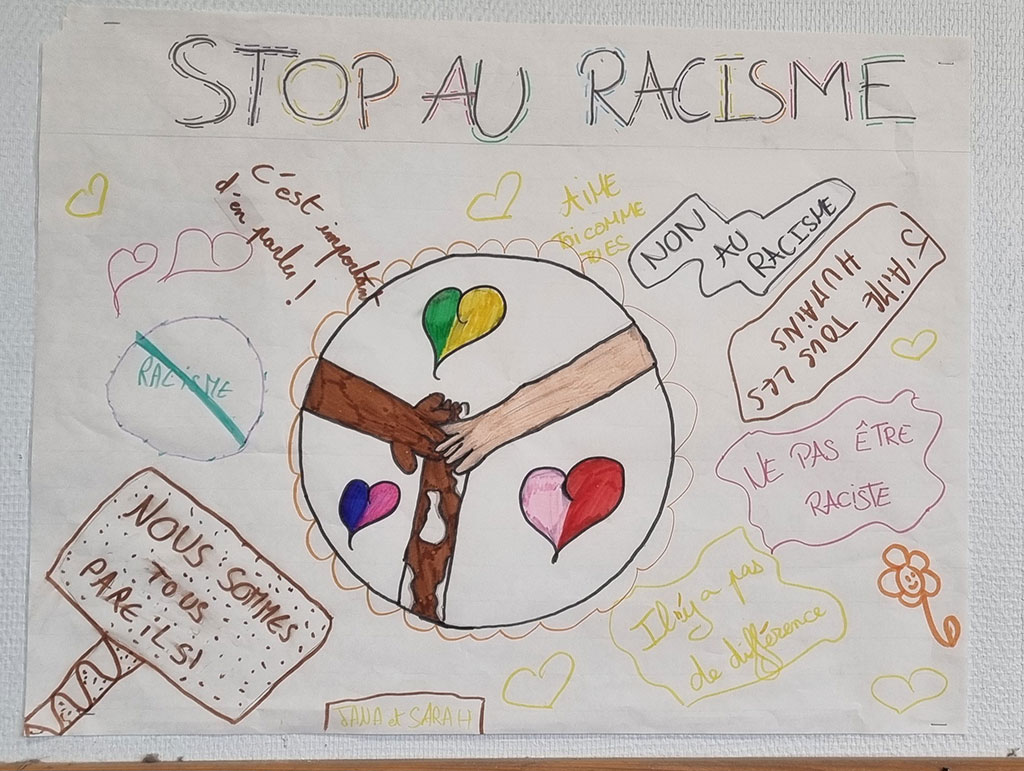 STOP AU RACISME
C'est important
d'en parler !
AiME
toi COMME
TU ES
NON
AU
RACISME
J'AiME TOUS LES
HUMAiNS
RACiSME
NE PAS ÊTRE
RACISTE
NOUS SOMMES
TOUS
PAREILS!
Il n'y a pas
de différence
JANA et SARAH